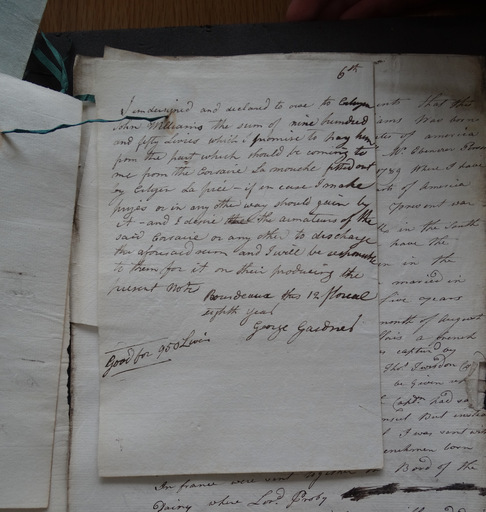 6th
I undersigned and declared to owe to Citizen
John Williams the sum of nine hundred
and fifty Livres which I promise to pay him
from the part which should be coming to
me from the Corsaire La mouche fitted out
by Citizen La pree - if in case I make
prizes or in any other way should gain by
it - and I desire the armateurs of the
said Corsaire or any other to discharge
the aforesaid sum and I will be responsible
to them for it on their producing the
present Note
Bourdeaux this 12 floreal
eighth year
George Gardner
Good for 950 Livres
that this
was born
of america
Mr. Ebenezer
1789 Where I have
of America
war
in the South
have the
in the
married in
five years
month of August
a french
captured by
Thos.
be Given up
Captn. had so
But
I was sent
born
In france were sent together on Bord of the
Dairy where Lord Proby